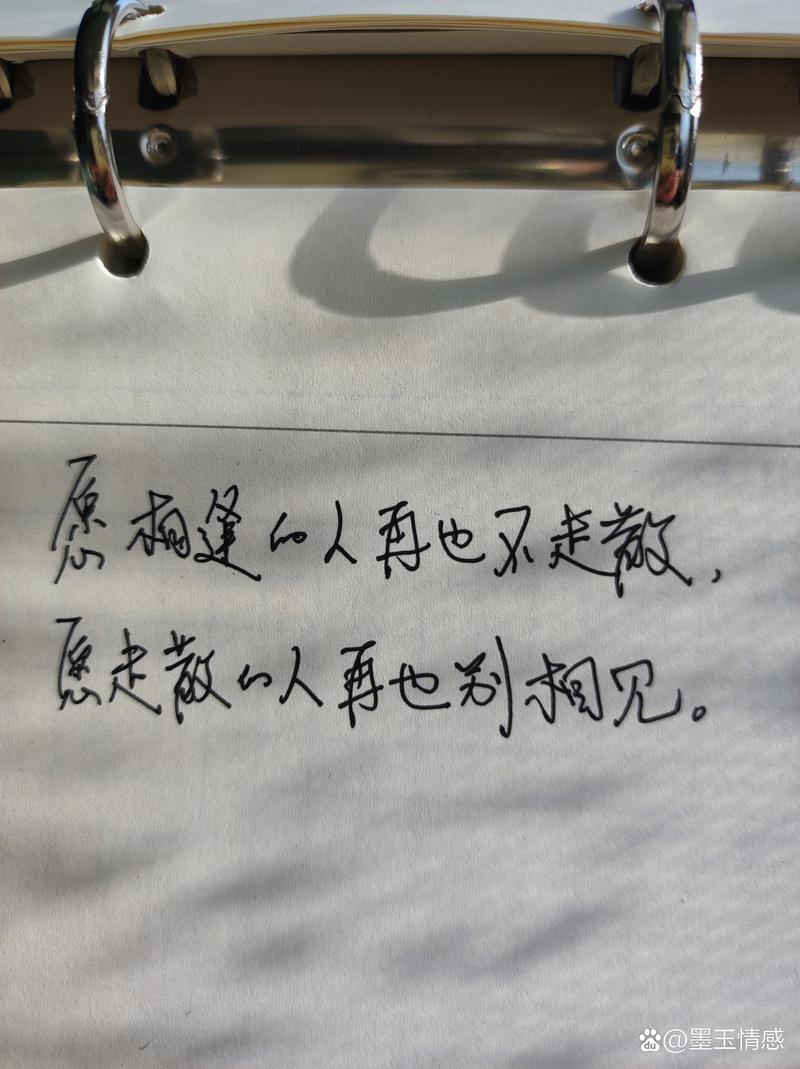 愿相逢的人再也不走散,
愿走散的人再也别相见。
du @墨玉情感